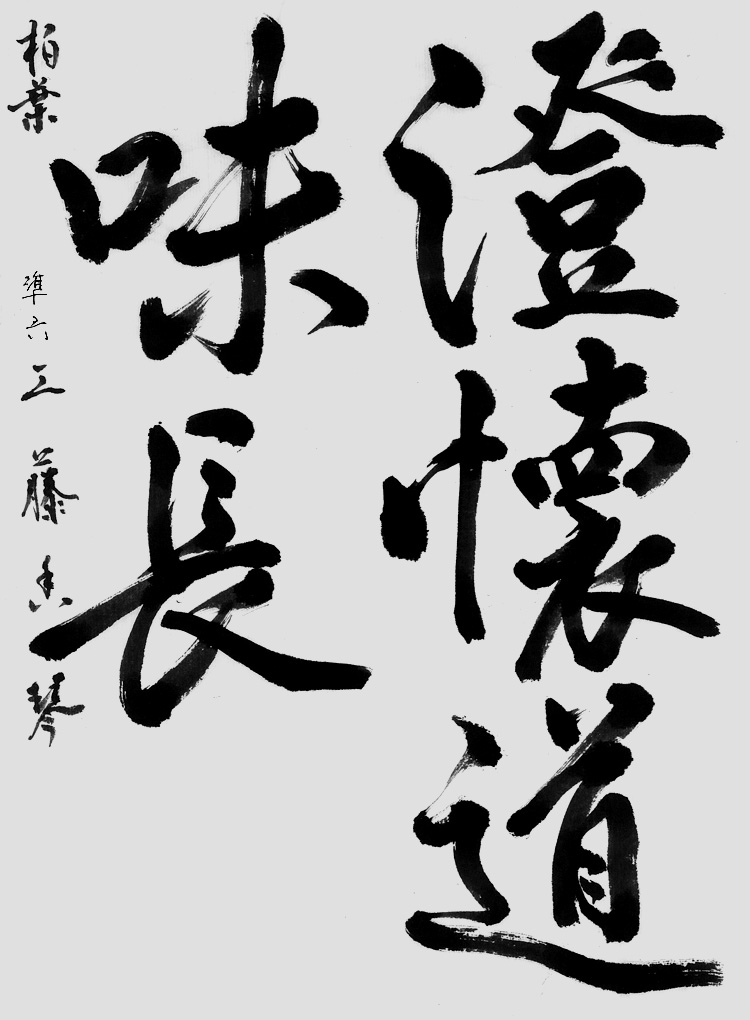 澄懐道
味長
柏葉 準六 三 藤 香 琴